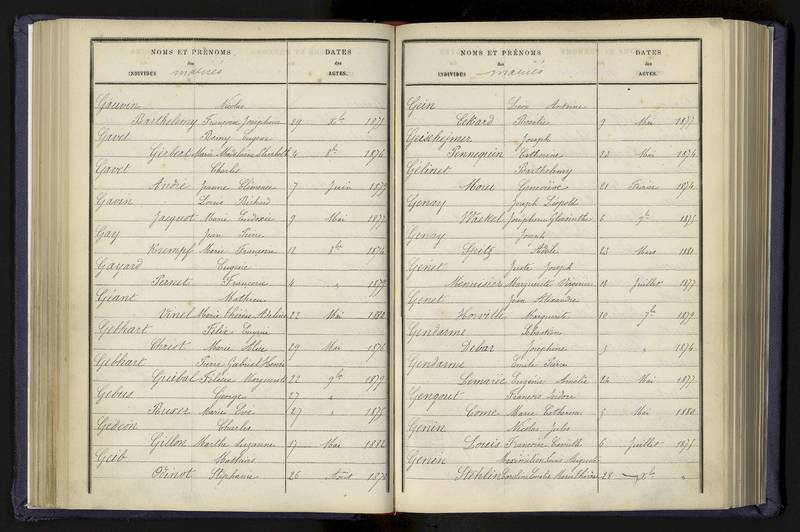 NOMS ET PRÉNOMS
des
INDIVIDUS mariés
DATES
des
ACTES.
Gauvin Nicolas
Barthelemy Françoise Joséphine 29 Xbre 1871
Gavet Remy Eugène
Gerbert Marie Madeleine Elisabeth 4 1876
Gavet Charles
André Jeanne Clémence 7 Juin 1879
Gavin Louis Richard
Jacquot Marie Eudoxie 9 Mai 1877
Gay Jean Pierre
Krempf Marie Françoise 12 8bre 1874
Gayard Eugène
Pernet Françoise 4 " 1879
Géant Mathieu
Vinel Marie Thérèse Adeline 22 Mai 1882
Gebhart Félix Eugène
Chrest Marie Alice 29 Mai 1876
Gebhart Pierre Gabriel Henri
Guibal Félicie Marguerite 22 9bre 1879
Gebus George 27 "
Buxer Marie Eve 27 " 1875
Gedéon Charles
Gillon Marthe Suzanne 17 Mai 1882
Geib Mathias
Odinot Stéphanie 26 Août 1878
NOMS ET PRÉNOMS
des
INDIVIDUS mariés
DATES
des
ACTES.
Gein Léon Antoine
Eckard Rosalie 9 Mai 1877
Geisheimer Joseph
Pennequin Catherine 23 Mai 1874
Gélinet Barthelemy
Mour Geneviève 21 Février 1874
Genay Joseph Léopold
Wackel Joséphine 6 9bre 1875
Genay Joseph
Spitz Adèle 23 Mars 1881
Genet Juste Joseph
Mennisier Marguerite Virginie 18 Juillet 1877
Genet Jean Alexandre
Horville Marguerite 10 7bre 1879
Gendarme Sébastien
Debar Joséphine 3 " 1874
Gendarme Emile Pierre
Lemarié Eugénie Amélie 24 Mai 1877
Gengout François Isidore
Come Marie Catherine 3 Mai 1880
Genin Nicolas Jules
Louis Françoise Camille 6 Juillet 1875
Genin Maximilien Louis Auguste
Stehlin Caroline Emélie Marie Thérèse 28 Xbre "